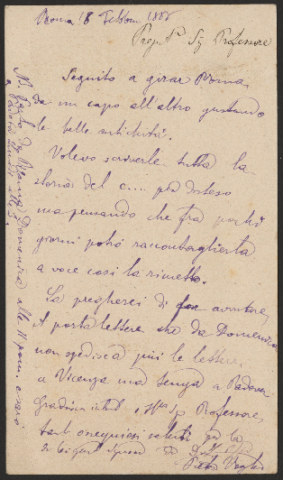 Roma 18 Febbr. 1886
Preg. Sig. Professore
Seguito a girar Roma
da un capo all'altro gustando
le belle antichità.
Volevo scriverle tutta la
storia del c.... per disteso
ma pensando che fra pochi
giorni potrò raccontargliela
a voce così la rimetto.
La pregherei di far avvertire
il portalettere che da Domenica
non spedisca più le lettere
a Vicenza ma tenga a Padova
Gradisca Sig. Professore,
tanti ossequi
Parto di Domenica alle 11 pom. e sarò
a Padova Lunedì alle 3.